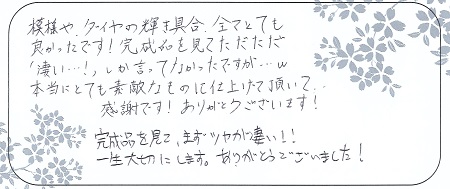 模様や、ダイヤの輝き具合、全てとても
良かったです！完成品を見てただただ
「凄い…！」しか言ってなかったですが…w
本当にとても素敵なものに仕上げて頂いて‥
感謝です！ありがとうございます！
完成品を見て、まずツヤが凄い！！
一生大切にします。ありがとうございました！